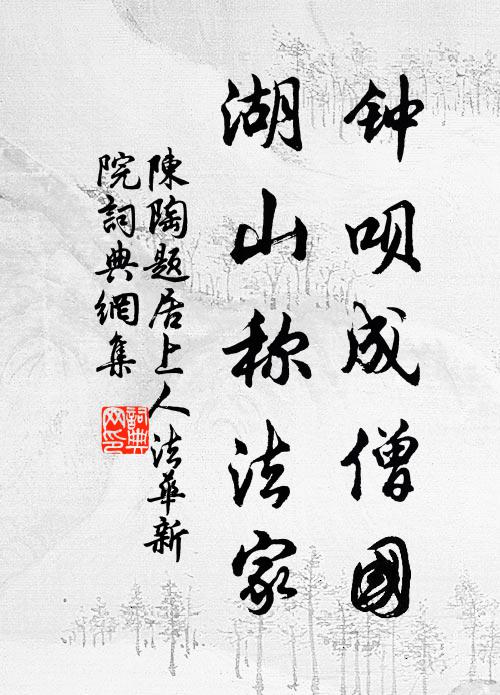 钟呗成僧國
湖山称法家
陳陶題居上人法華新
院詞典網集
詞典
网印